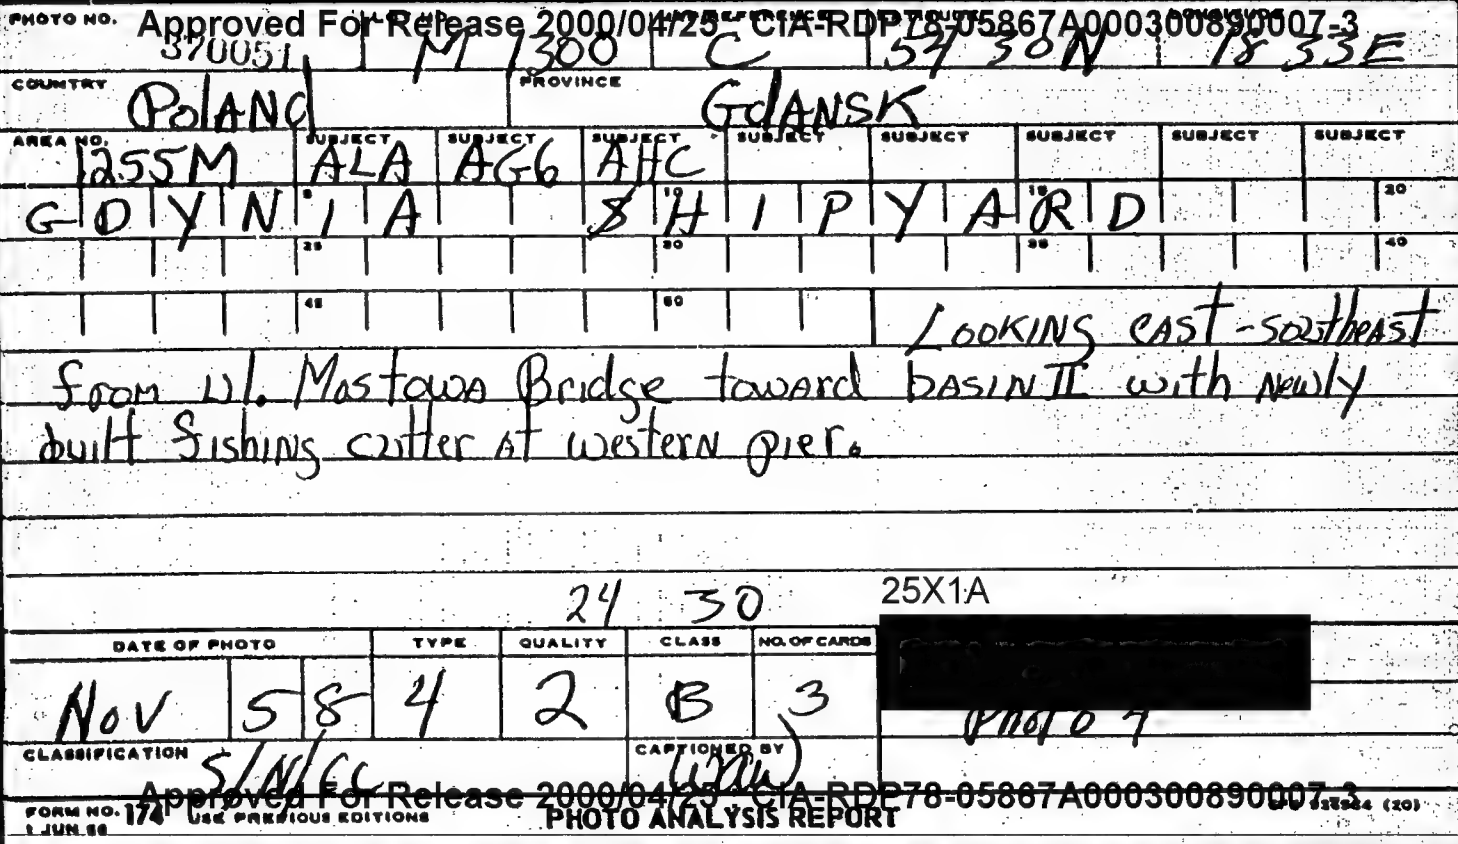 PHOTO NO.
Approved For Release 2000/04/25 : CIA-RDP78-05867A000300890007-3
370051 M 1300 C 54 30N 18 33E
COUNTRY PROVINCE
PolANd GdANSK
AREA NO. SUBJECT SUBJECT SUBJECT SUBJECT SUBJECT SUBJECT SUBJECT SUBJECT
1255M ALA AG6 AHC
5 10 15 20
GDYNIA SHIPYARD
25 30 35 40
45 50
LOOKING EAST-SOUTHEAST
from Ul. Mostowa Bridge toward BASIN II with Newly
built fishing cutter at western pier.
24 30
25X1A
DATE OF PHOTO TYPE QUALITY CLASS NO. OF CARDS
Nov 58 4 2 B 3
Photo 4
CLASSIFICATION CAPTIONED BY
S/N/CC
Approved For Release 2000/04/25 : CIA-RDP78-05867A000300890007-3
FORM NO. 174 USE PREVIOUS EDITIONS PHOTO ANALYSIS REPORT (20)
1 JUN 56